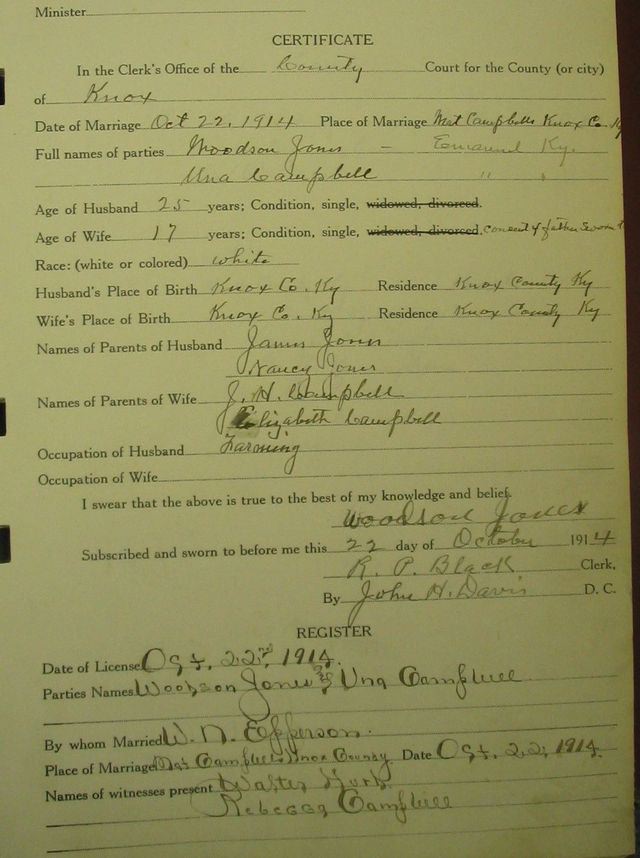 Minister
CERTIFICATE
In the Clerk's Office of the County Court for the County (or city)
of Knox
Date of Marriage Oct 22, 1914 Place of Marriage Mat Campbells Knox Co. Ky
Full names of parties Woodson Jones — Emanuel Ky.
Una Campbell " "
Age of Husband 25 years; Condition, single, widowed, divorced.
Age of Wife 17 years; Condition, single, widowed, divorced. consent of father sworn to
Race: (white or colored) white
Husband's Place of Birth Knox Co. Ky Residence Knox County Ky
Wife's Place of Birth Knox Co. Ky Residence Knox County Ky
Names of Parents of Husband James Jones
Nancy Jones
Names of Parents of Wife J. H. Campbell
Elizabeth Campbell
Occupation of Husband Farming
Occupation of Wife
I swear that the above is true to the best of my knowledge and belief.
Woodson Jones
Subscribed and sworn to before me this 22 day of October 1914
R. P. Black Clerk,
By John H. Davis D. C.
REGISTER
Date of License Oct. 22nd 1914.
Parties Names Woodson Jones & Una Campbell
By whom Married W. N. Epperson.
Place of Marriage Mat Campbells Knox County Date Oct. 22, 1914
Names of witnesses present Walter
Rebecca Campbell